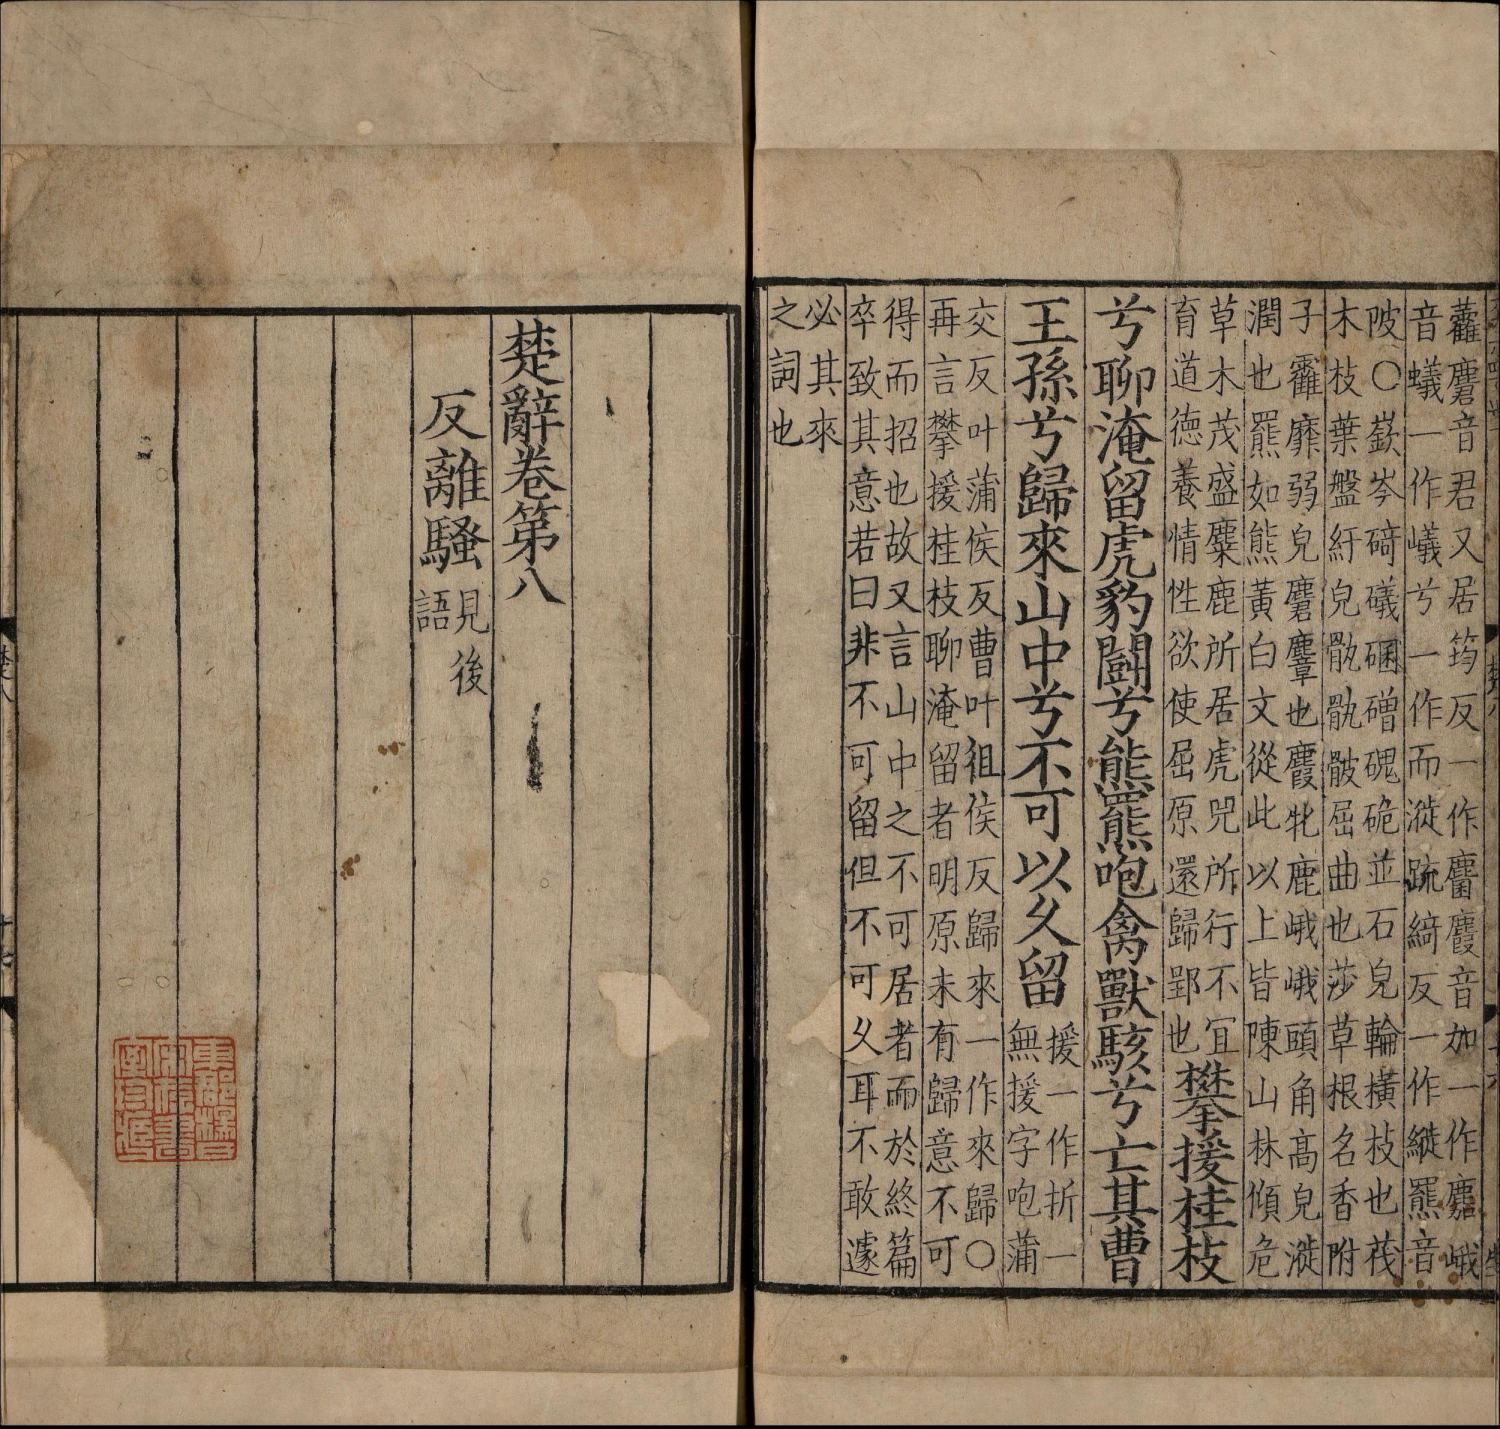 虇麏音君又居筠反一作麕麚音加一作麍峨
音蟻一作㠖兮一作而漇踈綺反一作縰羆音
陂○嶔岑碕礒碅磳磈硊並石皃輪橫枝也茷
木枝葉盤紆皃骩骫骳屈曲也莎草根名香附
子靃靡弱皃麏麞也麚牝鹿峨峨頭角高皃漇
潤也羆如熊黃白文從此以上皆陳山林傾危
草木茂盛麋鹿所居虎兕所行不宜
育道德養情性欲使屈原還歸郢也
攀援桂枝
兮聊淹留虎豹鬬兮熊羆咆禽獸駭兮亡其曹
王孫兮歸來山中兮不可以乆留
援一作折一
無援字咆蒲
交反叶蒲侯反曹叶徂侯反歸來一作來歸○
再言攀援桂枝聊淹留者明原未有歸意不可
得而招也故又言山中之不可居者而於終篇
卒致其意若曰非不可留但不可乆耳不敢遽
必其來
之詞也
楚辭卷第八
反離騷
見後
語
楚八